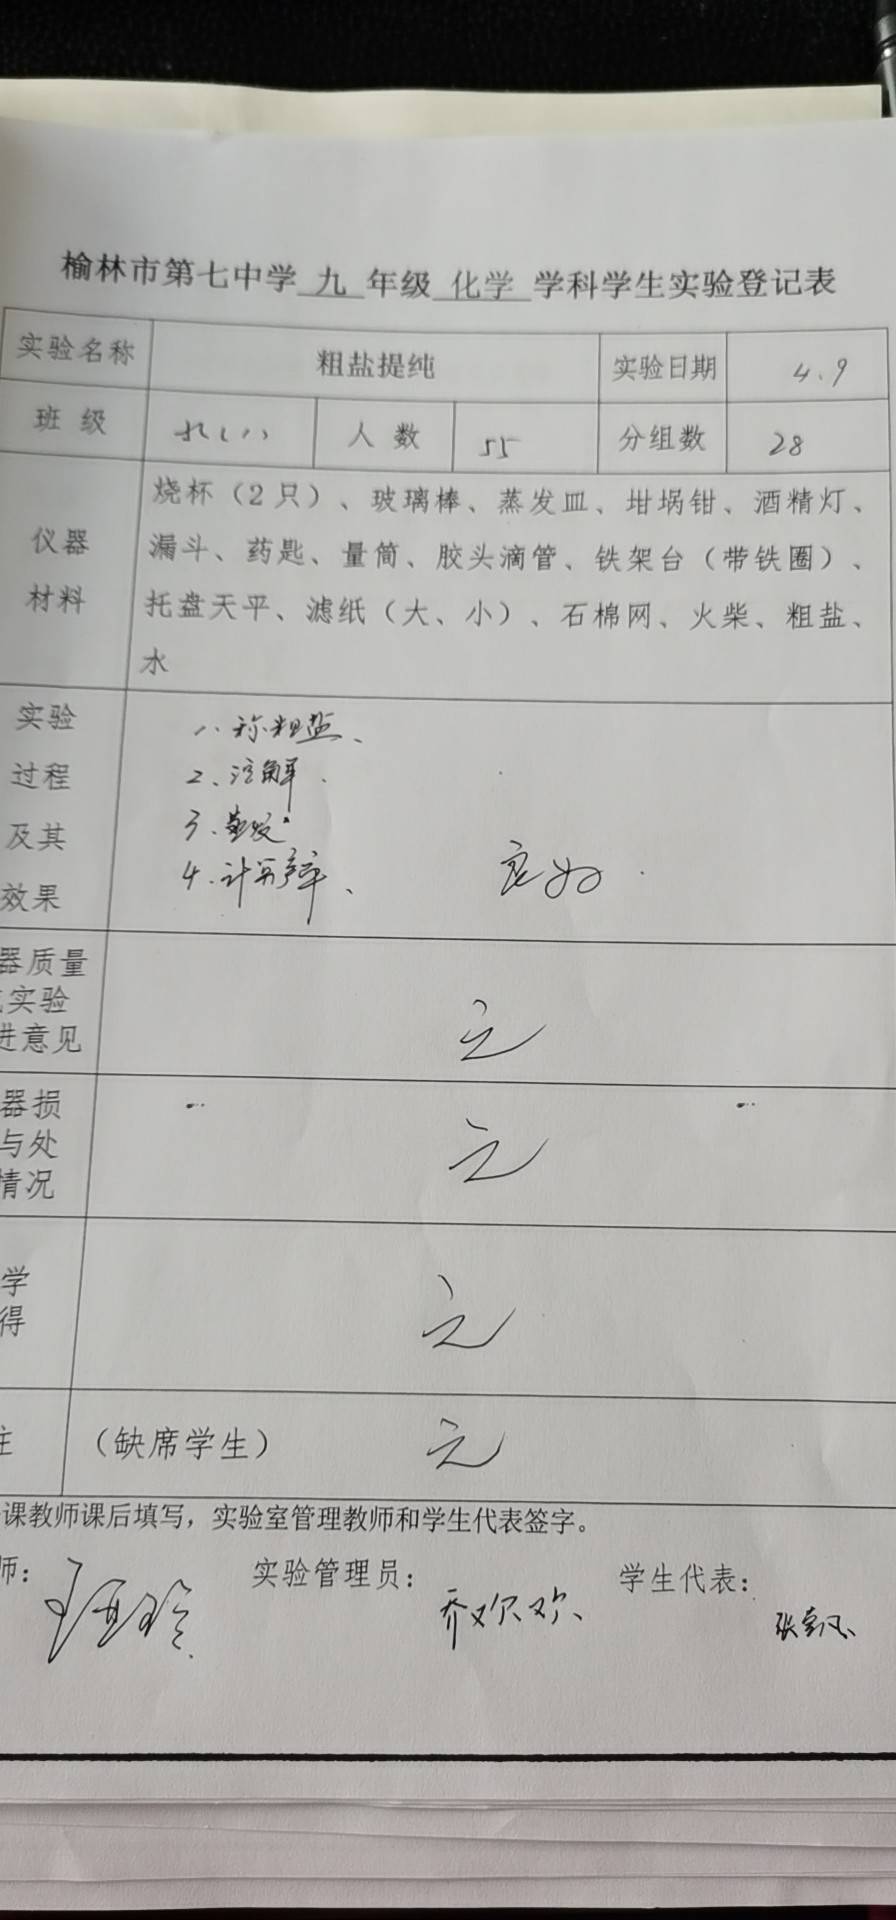 榆林市第七中学 九 年级 化学 学科学生实验登记表
实验名称 粗盐提纯 实验日期 4.9
班 级 九(1) 人 数 55 分组数 28
仪器
材料
烧杯（2只）、玻璃棒、蒸发皿、坩埚钳、酒精灯、
漏斗、药匙、量筒、胶头滴管、铁架台（带铁圈）、
托盘天平、滤纸（大、小）、石棉网、火柴、粗盐、
水
实验
过程
及其
效果
1、称粗盐、
2、溶解.
3、蒸发.
4.计算产率、 良好.
器质量
实验
进意见
无
器损
与处
情况
无
学
得
无
注 （缺席学生） 无
课教师课后填写，实验室管理教师和学生代表签字。
师： 实验管理员：乔欢欢 学生代表：